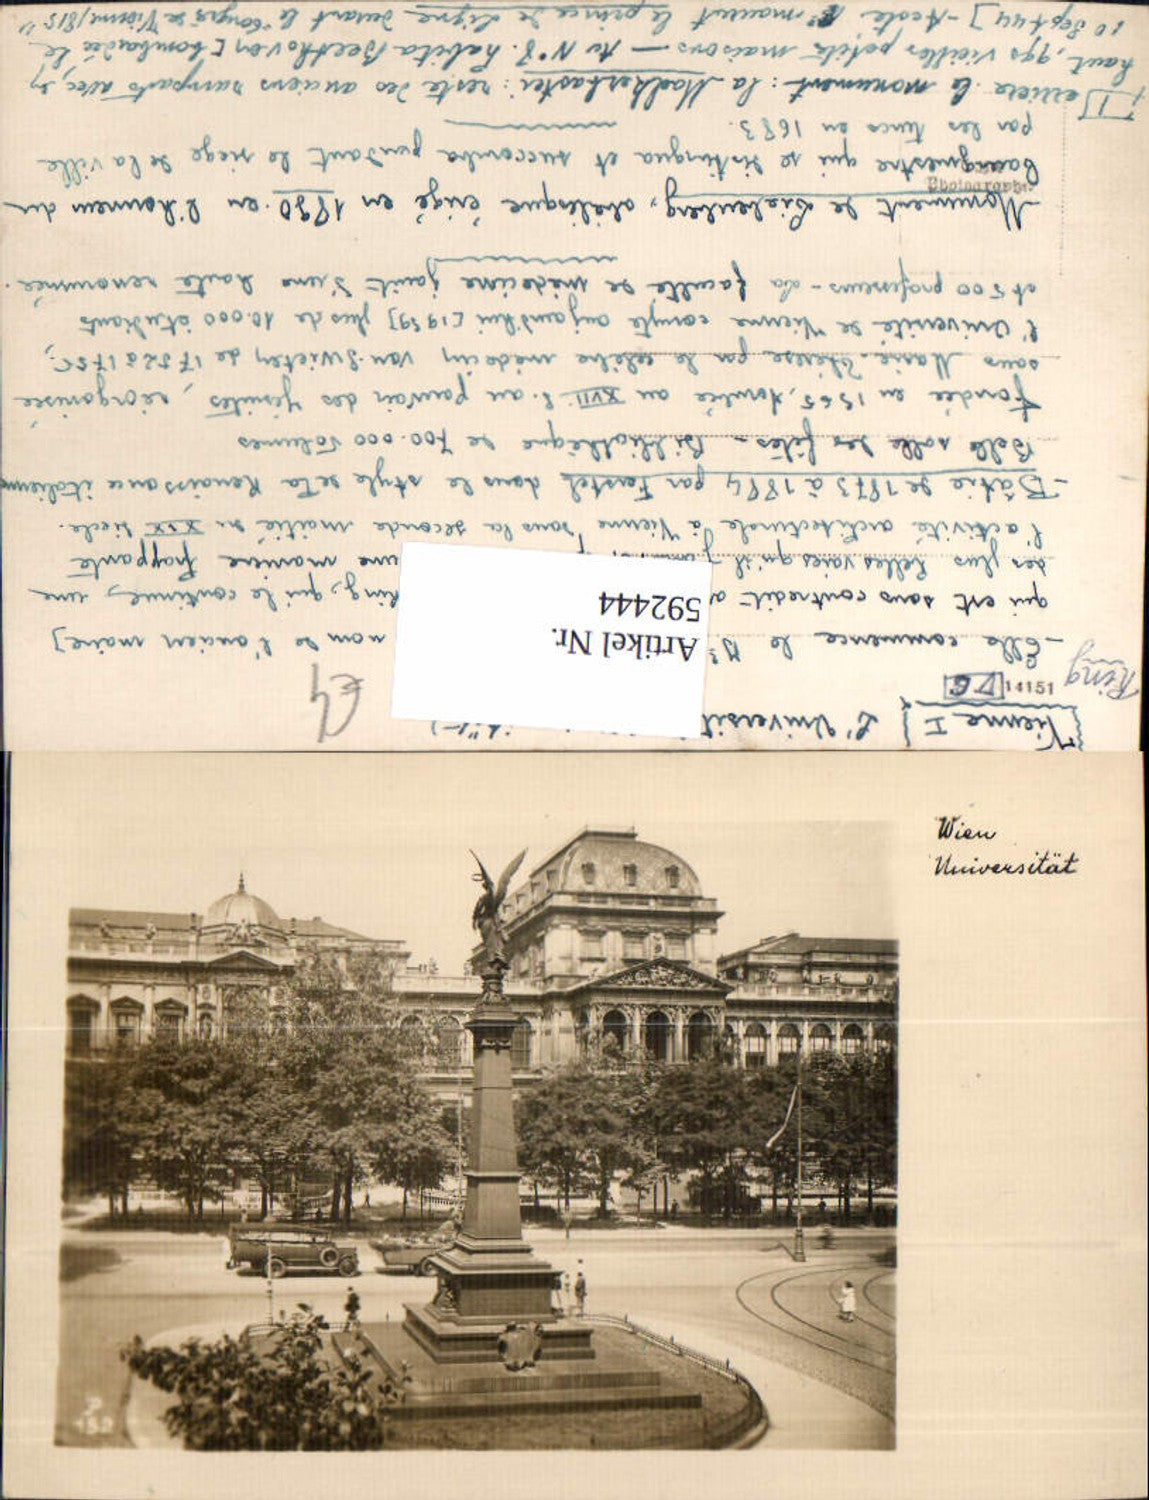 [Vienne I] L'Universit
14151
Ring
— Elle commence le nom de l'ancien maire]
qui est sans contredit Ring, qui le continue, une
des plus belles voies qu'il une manière frappante
l'activité architecturale à Vienne dans la seconde moitié du XIX siècle.
— Bâtie de 1873 à 1884 par Ferstel dans le style de la Renaissance italienne
Belle salle des fêtes — Bibliothèque de 700.000 volumes
Fondée en 1365, tombée au XVII s. au pouvoir des Jésuites, réorganisée
sous Marie-Thérèse par le célèbre médecin van Swieten de 1752 à 175
l'Université de Vienne compte aujourd'hui [1939] plus de 10.000 étudiants
et 500 professeurs — La faculté de médecine jouit d'une haute renommée.
Monument de Liebenberg, obélisque érigé en 1890 en l'honneur du
bourgmestre qui se distingua et succomba pendant le siège de la ville
par les Turcs en 1683.
Photograph
derrière le monument: la Mölkerbastei: reste des anciens remparts avec, en
haut, qqs vieilles petites maisons — Au N° 8 habita Beethoven [bombardée le
10 Sept 44] — A côté mourut le prince de Ligne durant le "Congrès de Vienne/1815"
Artikel Nr.
592444
Wien
Universität